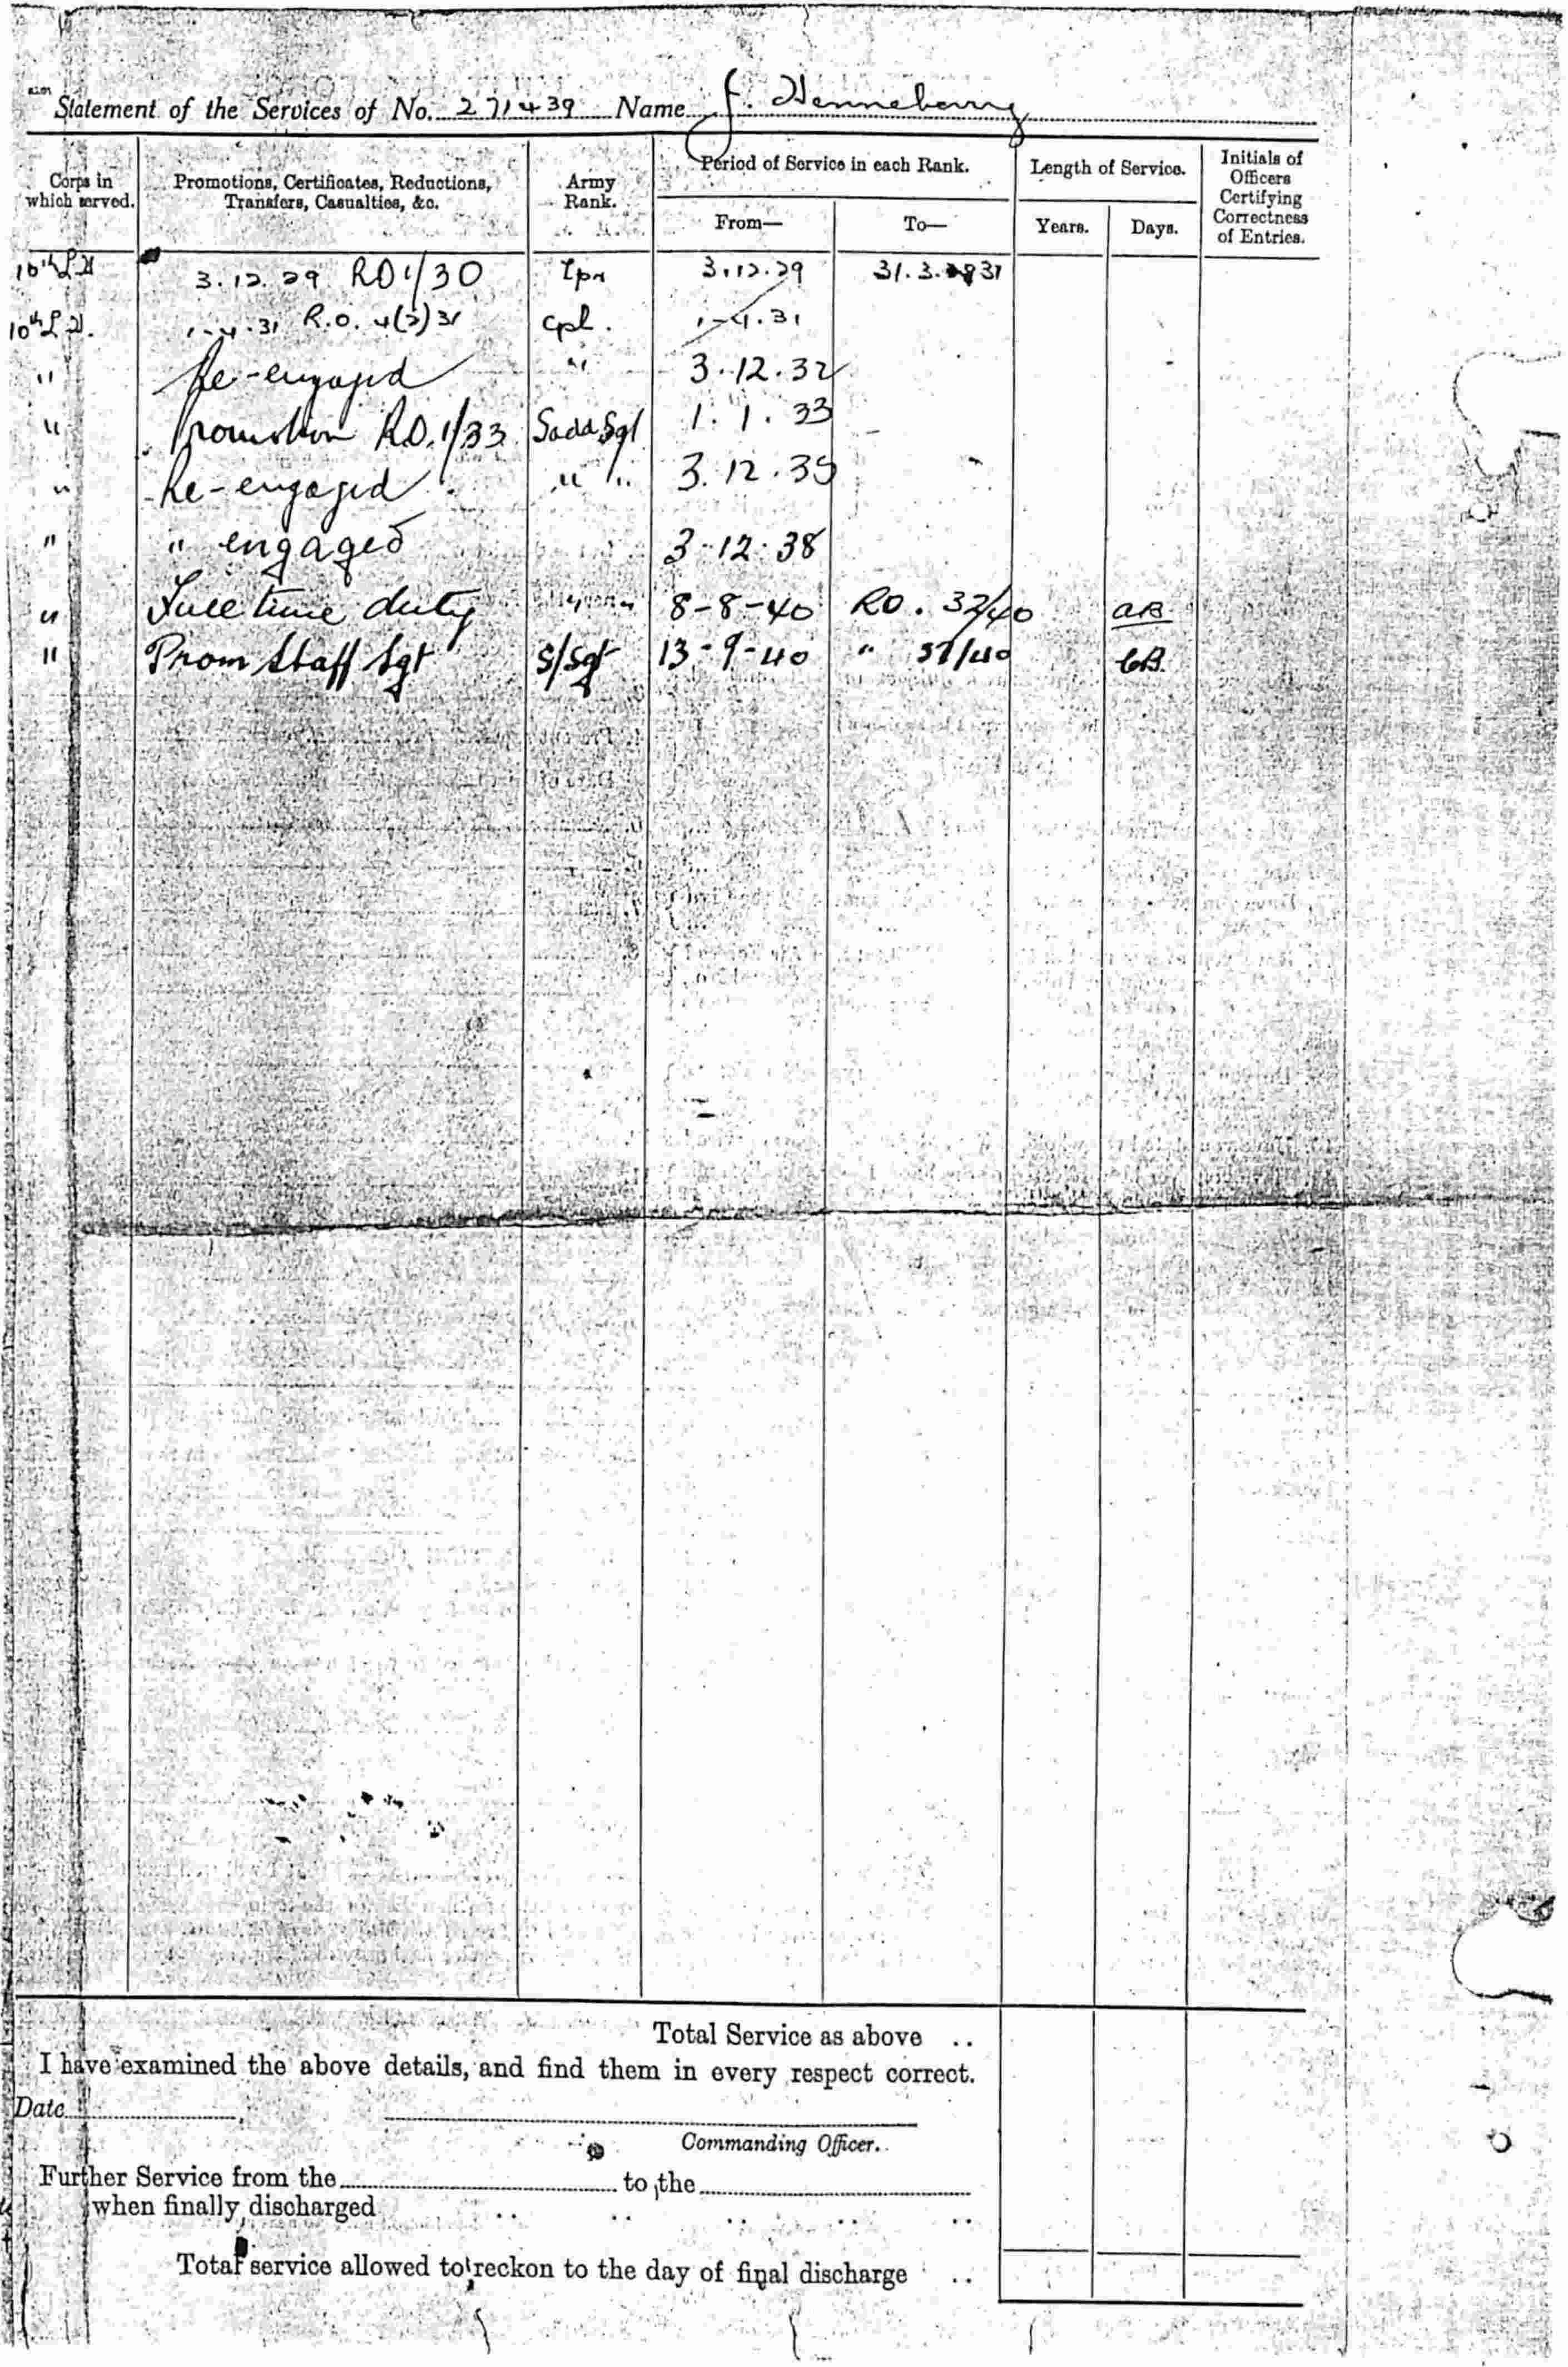 Statement of the Services of No. 271439 Name J. Henneberry
Corps in which served. Promotions, Certificates, Reductions, Transfers, Casualties, &c. Army Rank. Period of Service in each Rank. From— To— Length of Service. Years. Days. Initials of Officers Certifying Correctness of Entries.
10th L.H 3.12.29 RO 1/30 Tpr 3.12.29 31.3.31
10th L.H. 1-4-31 R.O. 4(2)31 Cpl. 1-4.31
" Re-engaged " 3.12.32
" Promotion R.O.1/33 Sadd.Sgt 1.1.33
" Re-engaged " " 3.12.35
" " engaged 3.12.38
" Full time duty 8-8-40 RO. 32/40
" Prom Staff Sgt S/Sgt 13-9-40 " 37/40
Total Service as above ..
I have examined the above details, and find them in every respect correct.
Date
Commanding Officer.
Further Service from the to the
when finally discharged .. .. .. .. ..
Total service allowed to reckon to the day of final discharge ..